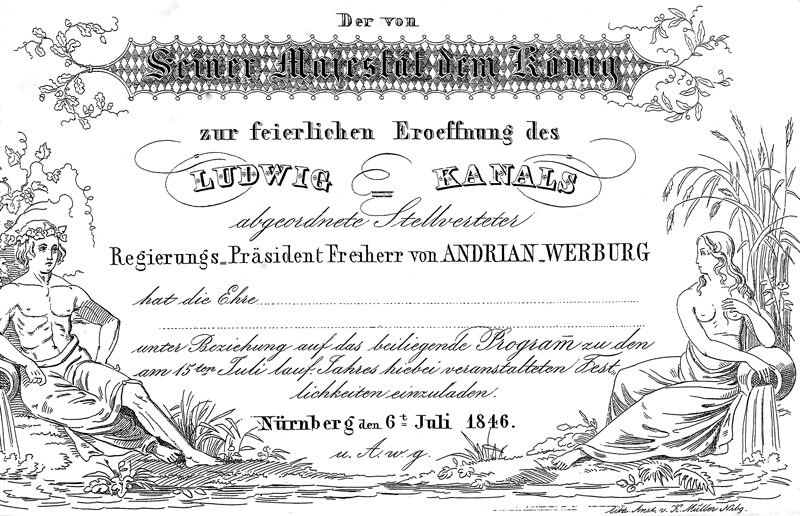 Der von
Seiner Majestät dem König
zur feierlichen Eroeffnung des
LUDWIG = KANALS
abgeordnete Stellverteter
Regierungs-Präsident Freiherr von ANDRIAN-WERBURG
hat die Ehre
unter Beziehung auf das beiliegende Program̅ zu den
am 15ten Juli lauf. Jahres hiebei veranstalteten Fest-
lichkeiten einzuladen.
Nürnberg den 6t Juli 1846.
u. A. w. g.
Lith. Anst. v. K. Müller Nbg.